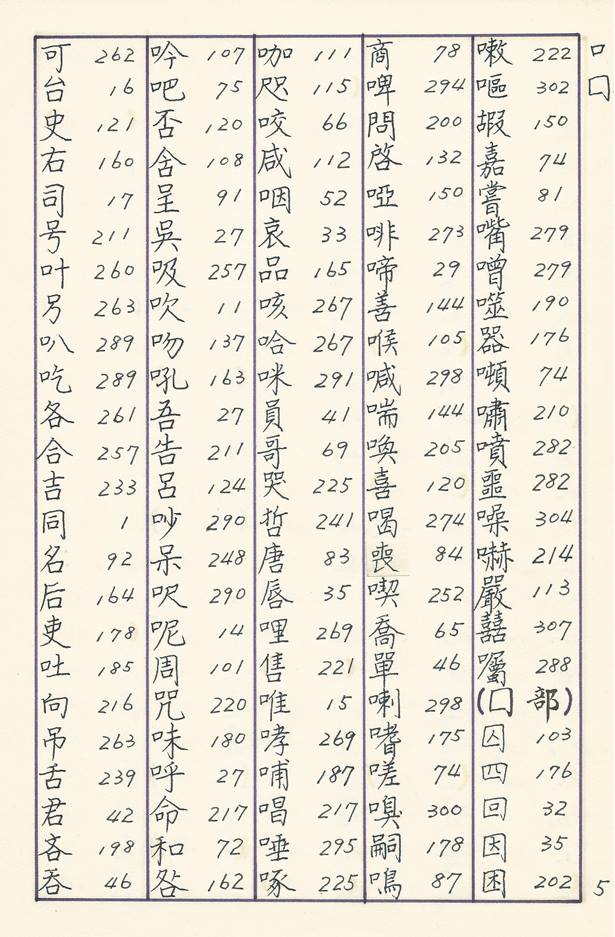 可 262
台 16
史 121
右 160
司 17
号 211
叶 260
另 263
叭 289
吃 289
各 261
合 257
吉 233
同 1
名 92
后 164
吏 178
吐 185
向 216
吊 263
舌 239
君 42
吝 198
吞 46
吟 107
吧 75
否 120
含 108
呈 91
吳 27
吸 257
吹 11
吻 137
吼 163
吾 27
告 211
呂 124
吵 290
呆 248
呎 290
呢 14
周 101
咒 220
味 180
呼 27
命 217
和 72
咎 162
咖 111
咫 115
咬 66
咸 112
咽 52
哀 33
品 165
咳 267
哈 267
咪 291
員 41
哥 69
哭 225
哲 241
唐 83
唇 35
哩 269
售 221
唯 15
哮 269
哺 187
唱 217
唾 295
啄 225
商 78
啤 294
問 200
啓 132
啞 150
啡 273
啼 29
善 144
喉 105
喊 298
喘 144
喚 205
喜 120
喝 274
喪 84
喫 252
喬 65
單 46
喇 298
嗜 175
嗟 74
嗅 300
嗣 178
鳴 87
嗽 222
嘔 302
嘏 150
嘉 74
嘗 81
嘴 279
噌 279
噬 190
器 176
噸 74
嘯 210
噴 282
噩 282
噪 304
嚇 214
嚴 113
囍 307
囑 288
(囗 部)
囚 103
四 176
回 32
因 35
困 202
口
囗
5